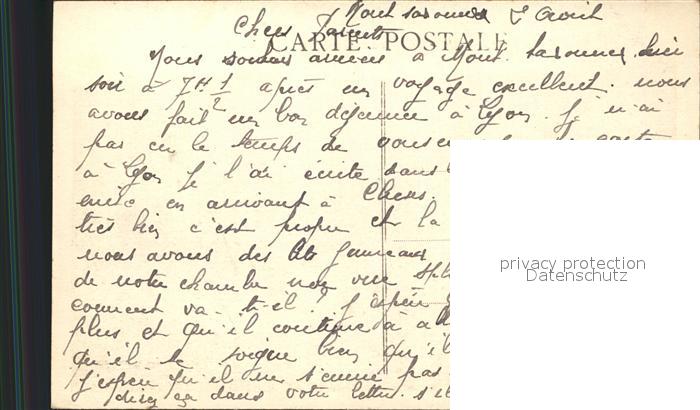 Mont Saxonnex 8 Avril
Chers Parents
CARTE POSTALE
Nous sommes arrivés à Mont Saxonnex hier
soir à 7H 1/2 après un voyage excellent. nous
avons fait un bon déjeuner à Lyon. Je n'ai
pas eu le temps de vous carte
à Lyon je l'ai écrite dans
en arrivant à
très bien c'est propre et la
nous avons des lits jumeaux
de notre chambre une vue
comment va-t-il? J'espère
plus et qu'il continue à
qu'il se soigne bien qu'il
j'espère qu'il ne s'ennuie pas
dans votre lettre. s'il
privacy protection
Datenschutz